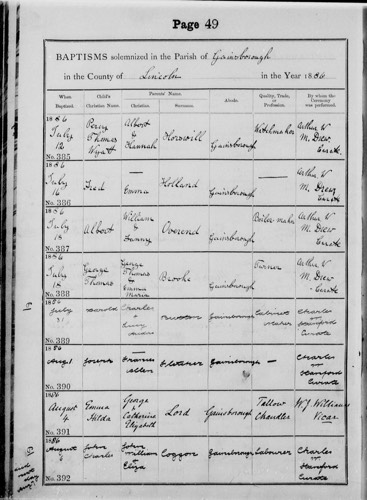 Page 49
BAPTISMS solemnized in the Parish of Gainsborough
in the County of Lincoln in the Year 1886
When Baptized. Child's Christian Name. Parents' Name. Christian. Surname. Abode. Quality, Trade, or Profession. By whom the Ceremony was performed.
1886
July 12 Percy Thomas Wyatt Albert & Hannah Gainsborough Arthur V M. Drew Curate.
No. 385
1886
July 16 Fred — Emma Holland Gainsborough — Arthur V M. Drew Curate
No. 386
1886
July 18 Albert William & Fanny Overend Gainsborough Boiler maker Arthur V M. Drew Curate
No. 387
1886
July 18 George Thomas George Thomas & Emma Maria Brooke Gainsborough Turner Arthur V M. Drew Curate
No. 388
1886
July 31 Harold Charles & Lucy Gainsborough Cabinet Maker Charles Hanford Curate
No. 389
1886
Aug 1 Ellen Gainsborough — Charles Hanford Curate
No. 390
1886
August 4 Emma Hilda George & Catherine Elizabeth Lord Gainsborough Tallow Chandler W. J. Williams Vicar
No. 391
1886
August John Charles John William & Eliza Gainsborough Labourer Charles Hanford Curate
No. 392